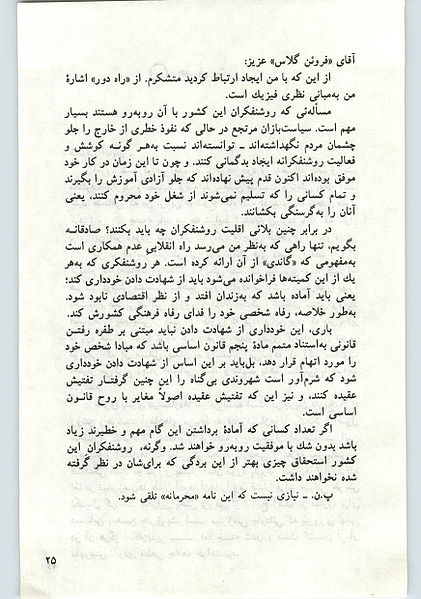 آقای «فروئن گلاس» عزیز:
از این که با من ایجاد ارتباط کردید متشکرم. از «راه دور» اشارهٔ
من به‌مبانی نظری فیزیك است.
مسأله‌ئی که روشنفکران این کشور با آن روبه‌رو هستند بسیار
مهم است. سیاست‌بازان مرتجع در حالی که نفوذ خطری از خارج را جلو
چشمان مردم نگهداشته‌اند ـ توانسته‌اند نسبت به‌هـر گونـه کوشش و
فعالیت روشنفکرانه ایجاد بدگمانی کنند. و چون تا این زمان در کار خود
موفق بوده‌اند اکنون قدم پیش نهاده‌اند که جلو آزادی آموزش را بگیرند
و تمام کسانی را که تسلیم نمی‌شوند از شغل خود محروم کنند، یعنی
آنان را به‌گرسنگی بکشانند.
در برابر چنین بلائی اقلیت روشنفکران چه باید بکنند؟ صادقانـه
بگویم، تنها راهی که به‌نظر من می‌رسد راه انقلابی عدم همکاری است
به‌مفهومی که «گاندی» از آن ارائه کرده است. هر روشنفکری که به‌هر
یك از این کمیته‌ها فراخوانده می‌شود باید از شهادت دادن خودداری کند؛
یعنی باید آماده باشد که به‌زندان افتد و از نظر اقتصادی نابود شود.
به‌طور خلاصه، رفاه شخصی خود را فدای رفاه فرهنگی کشورش کند.
باری، این خودداری از شهادت دادن نباید مبتنی بر طفره رفتـن
قانونی به‌استناد متمم مادهٔ پنجم قانون اساسی باشد که مبادا شخص خود
را مورد اتهام قرار دهد، بل‌باید بر این اساس از شهادت دادن خودداری
شود که شرم‌آور است شهروندی بی‌گناه را این چنین گرفتـار تفتیش
عقیده کنند، و نیز این که تفتیش عقیده اصولاً مغایر با روح قانـون
اساسی است.
اگر تعداد کسانی که آمادهٔ برداشتن این گام مهم و خطیرند زیاد
باشد بدون شك با موفقیت روبه‌رو خواهند شد. وگرنه، روشنفکران این
کشور استحقاق چیزی بهتر از این بردگی که برای‌شان در نظر گرفته
شده نخواهند داشت.
پ.ن. ـ نیازی نیست که این نامه «محرمانه» تلقی شود.
۲۵